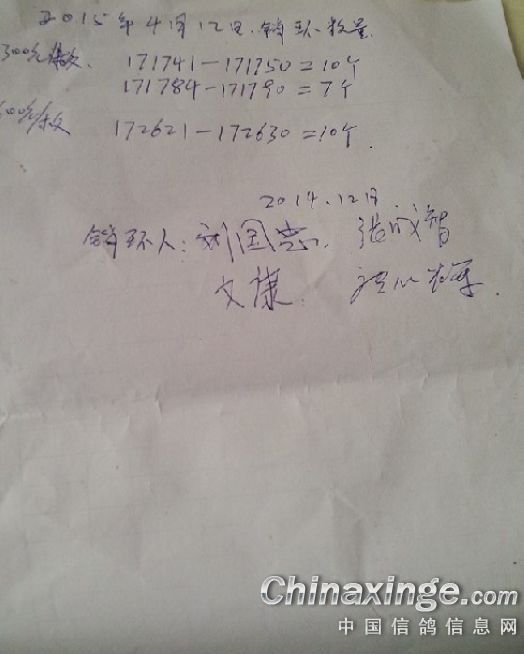 2015年4月12日.销环数量
300元 171741—171750=10个
171784—171790=7个
172621—172630=10个
2014.12日.
销环人:刘国志. 张成智
文康.
Chinaxinge.com
中国信鸽信息网